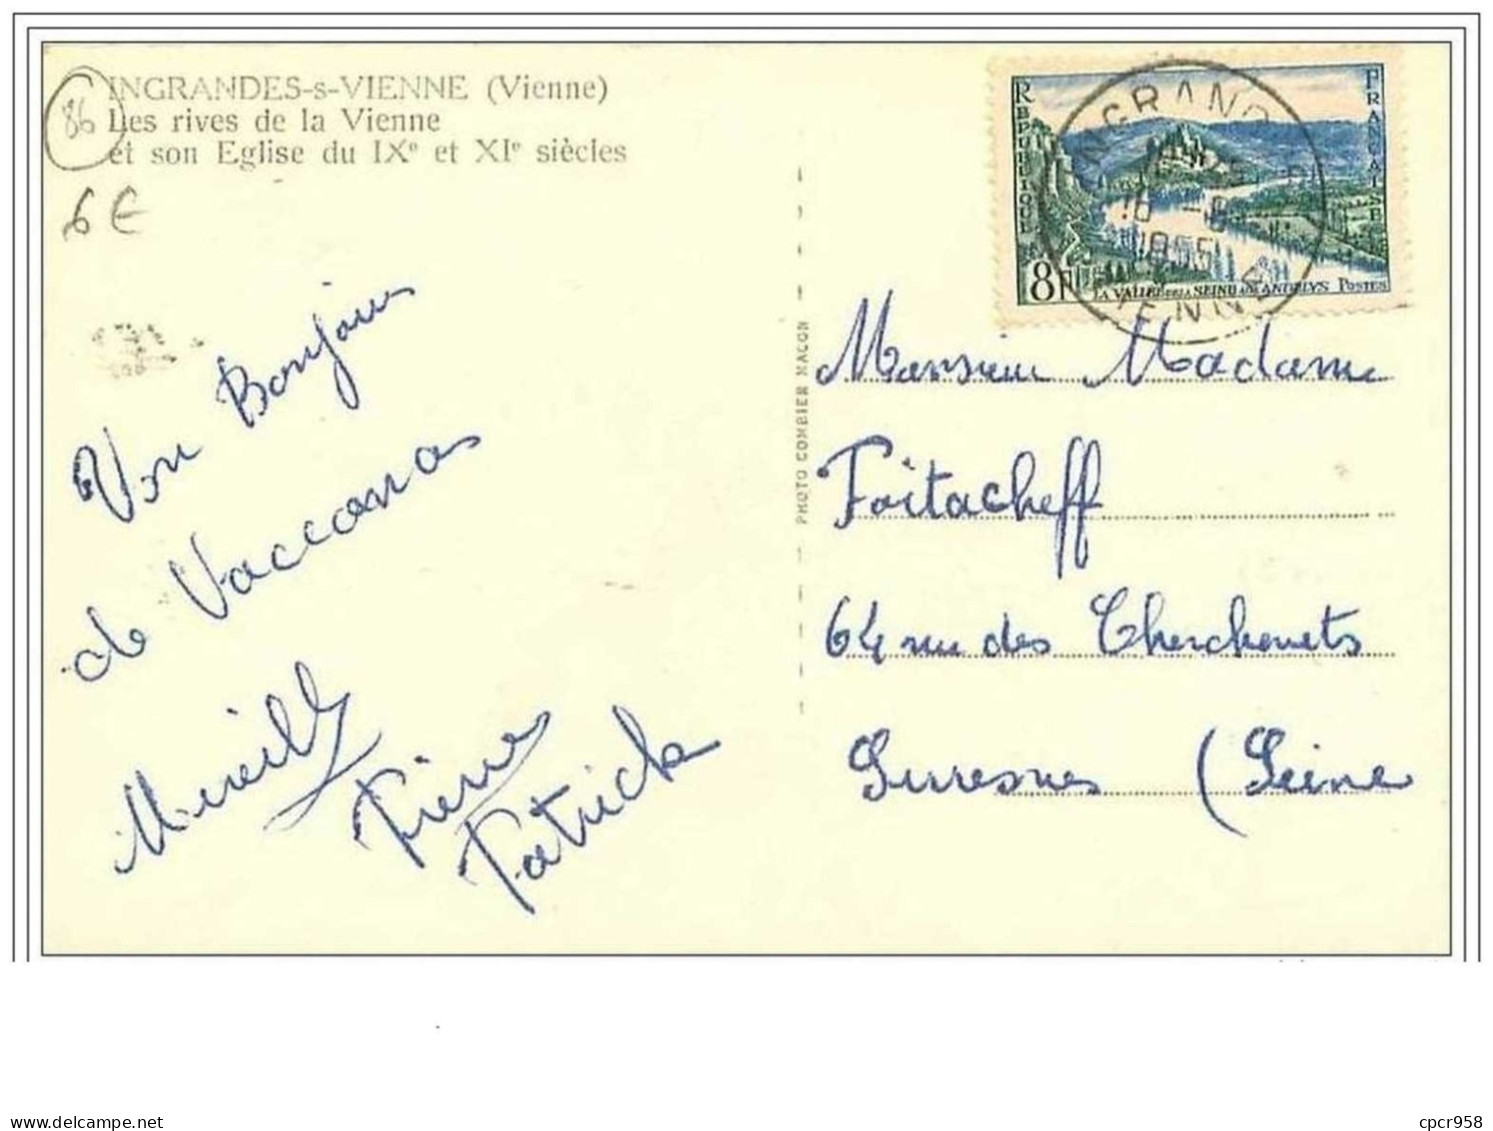 INGRANDES-s-VIENNE (Vienne)
Les rives de la Vienne
et son Eglise du IXe et XIe siècles
86
6€
Bonjour
de Vaccances
Mireille
Pierre
Patrick
PHOTO COMBIER MACON
RÉPUBLIQUE
FRANÇAISE
8F
LA VALLÉE DE LA SEINE AUX ANDELYS POSTES
INGRANDES
1955
VIENNE
Monsieur Madame
Foitacheff
64 rue des Cherchevets
Suresnes (Seine
cpcr958